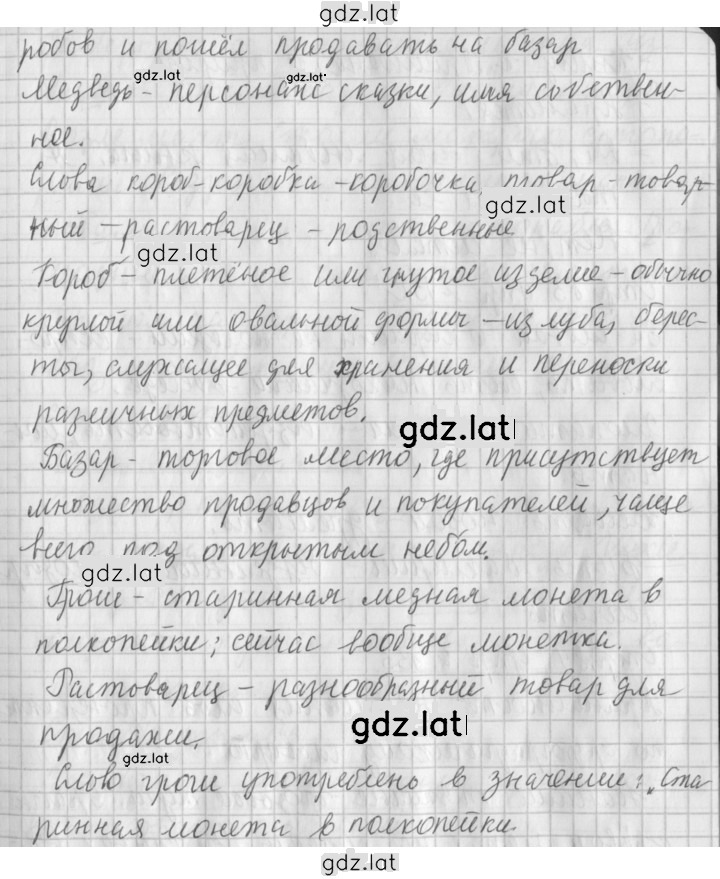 gdz.lat
робов и пошёл продавать на базар
gdz.lat gdz.lat
Медведь - персонаж сказки, имя собствен-
ное.
Слова короб-коробка-коробочка, товар - товар
gdz.lat
ный - растоварец - родственные
gdz.lat
Короб - плетёное или гнутое изделие - обычно
круглой или овальной формы - из луба, берес-
ты, служащее для хранения и переноски
различных предметов.
gdz.lat
Базар - торговое место, где присутствует
множество продавцов и покупателей, чаще
всего под открытым небом.
gdz.lat
Грош - старинная медная монета в
полкопейки; сейчас вообще монетка.
Растоварец - разнообразный товар для
gdz.lat
продажи.
gdz.lat
Слово грош употреблено в значении: „Ста
ринная монета в полкопейки.
gdz.lat